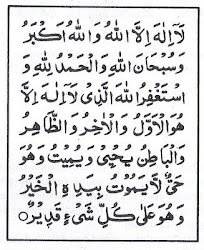 لَاۤ اِلٰهَ اِلَّا اللهُ وَاللهُ اَكْبَرُ
وَسُبْحَانَ اللهِ وَالْحَمْدُ لِلّٰهِ وَ
اسْتَغْفِرُ اللهَ الَّذِىْ لَاۤ اِلٰهَ اِلَّا
هُوَ الْاَوَّلُ وَالْاٰخِرُ وَالظَّاهِرُ
وَالْبَاطِنُ يُحْيِىْ وَيُمِيْتُ وَهُوَ
حَىٌّ لَّا يَمُوْتُ بِيَدِهِ الْخَيْرُ
وَهُوَ عَلٰى كُلِّ شَىْءٍ قَدِيْرٌ